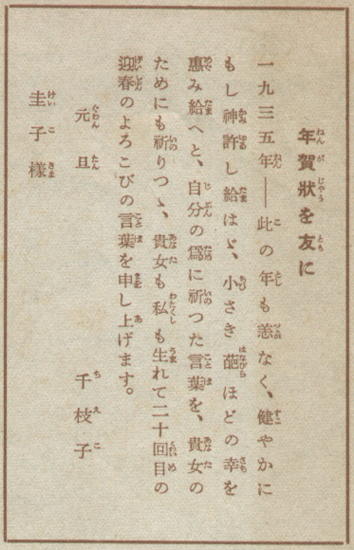 年賀狀を友に
一九三五年――此の年も恙なく、健やかに
もし神許し給はゞ、小さき葩ほどの幸を
惠み給へと、自分の爲に祈つた言葉を、貴女の
ためにも祈りつゝ、貴女も私も生れて二十回目の
迎春のよろこびの言葉を申し上げます。
元旦
千枝子
圭子樣